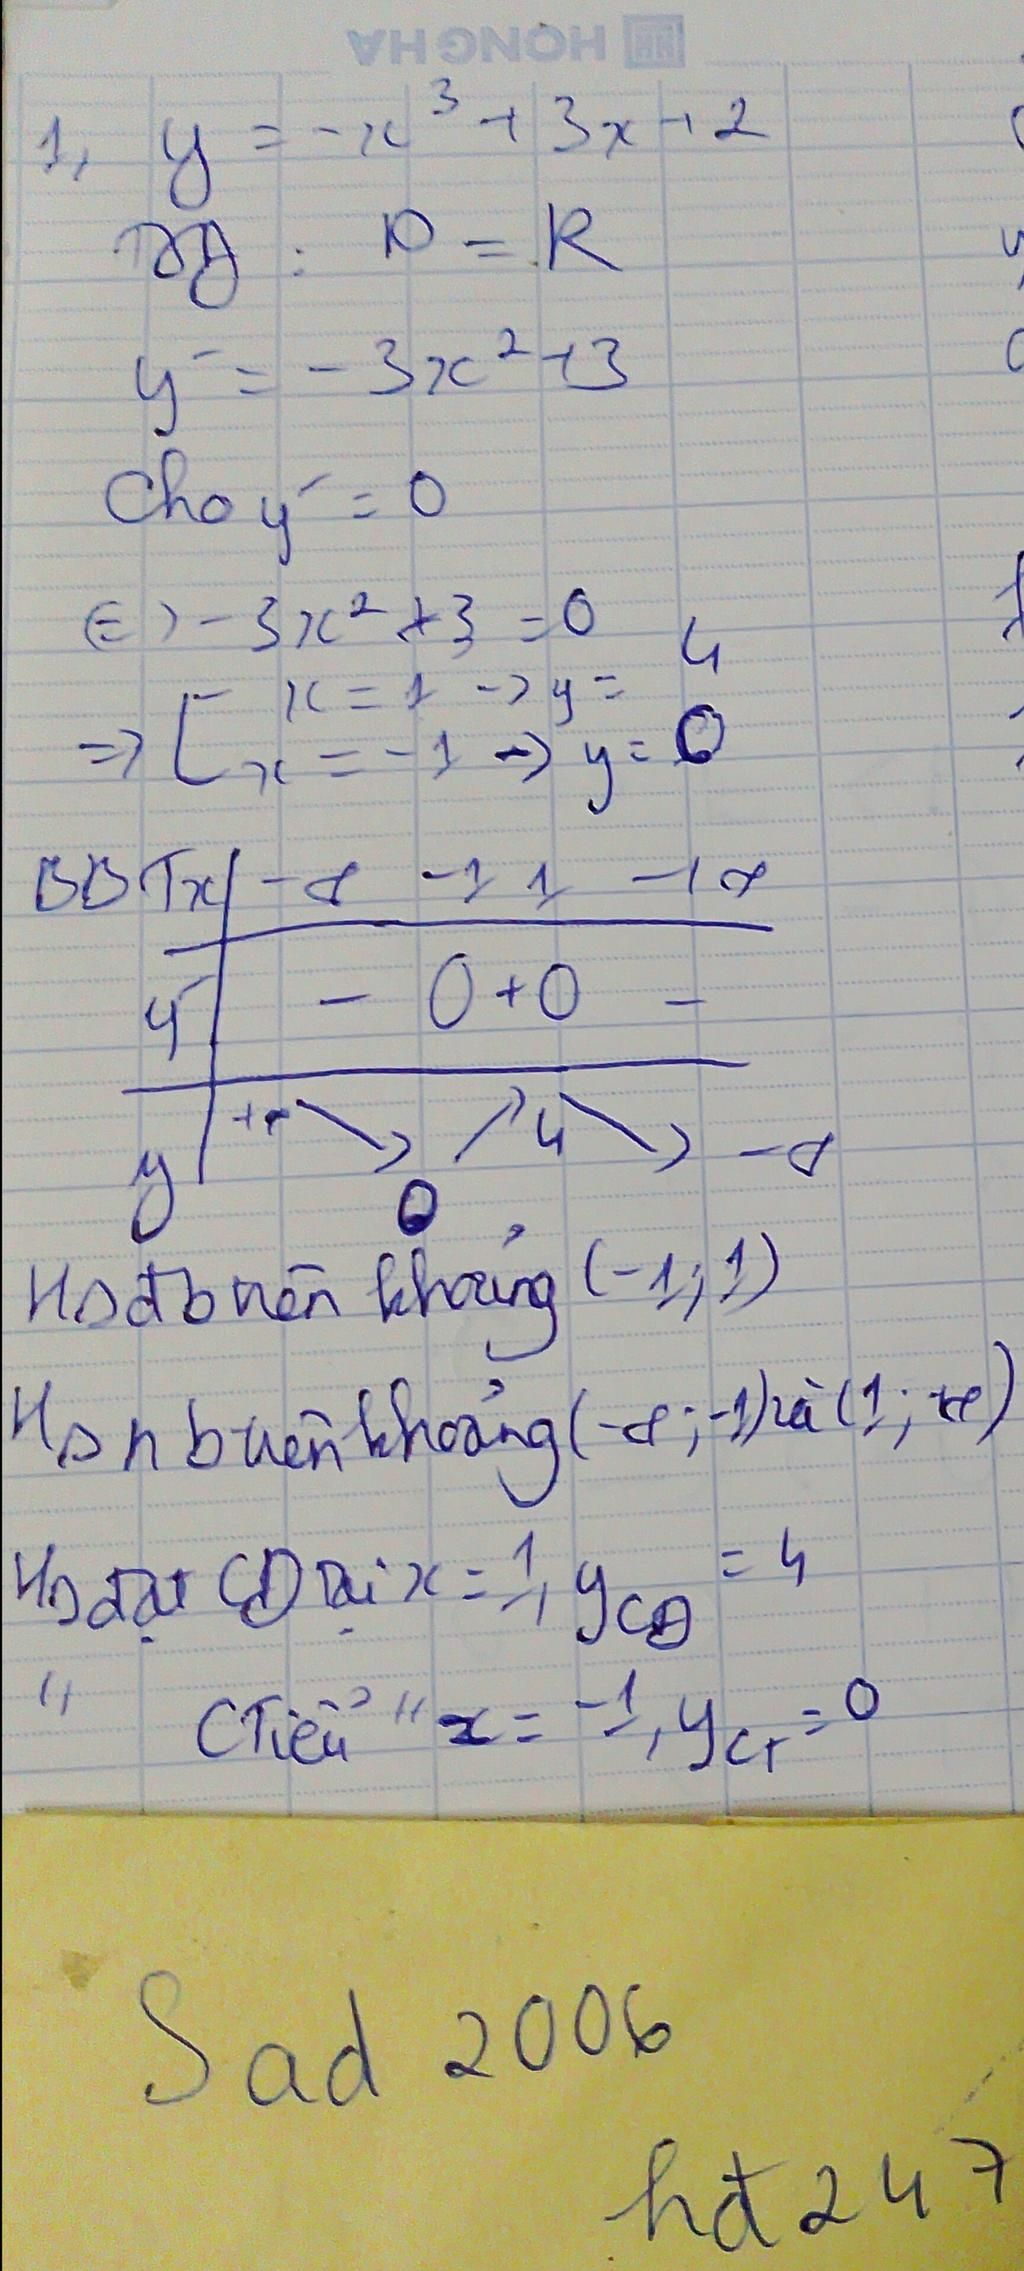 HONG HA
1, y = -x³ + 3x + 2
TXĐ : D = R
y' = -3x² + 3
Cho y' = 0
(=) -3x² + 3 = 0
=> [ x = 1 -> y = 4
x = -1 -> y = 0
BBT x | -∞ -1 1 +∞
y' | - 0 + 0 -
y | +∞ ↘ 0 ↗ 4 ↘ -∞
Hs đb trên khoảng (-1; 1)
Hs nb trên khoảng (-∞; -1) và (1; +∞)
Hs đạt CĐ tại x = 1, yCĐ = 4
" CTiểu " x = -1, yCT = 0
Sad 2006
hđ 247